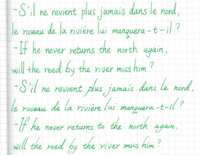 -S'il ne revient plus jamais dans le nord,
le roseau de la rivière lui manquera-t-il?
-If he never returns to the north again,
will the reed by the river miss him?
-S'il ne revient plus jamais dans le nord,
le roseau de la rivière lui manquera-t-il?
-If he never returns to the north again,
will the reed by the river miss him?